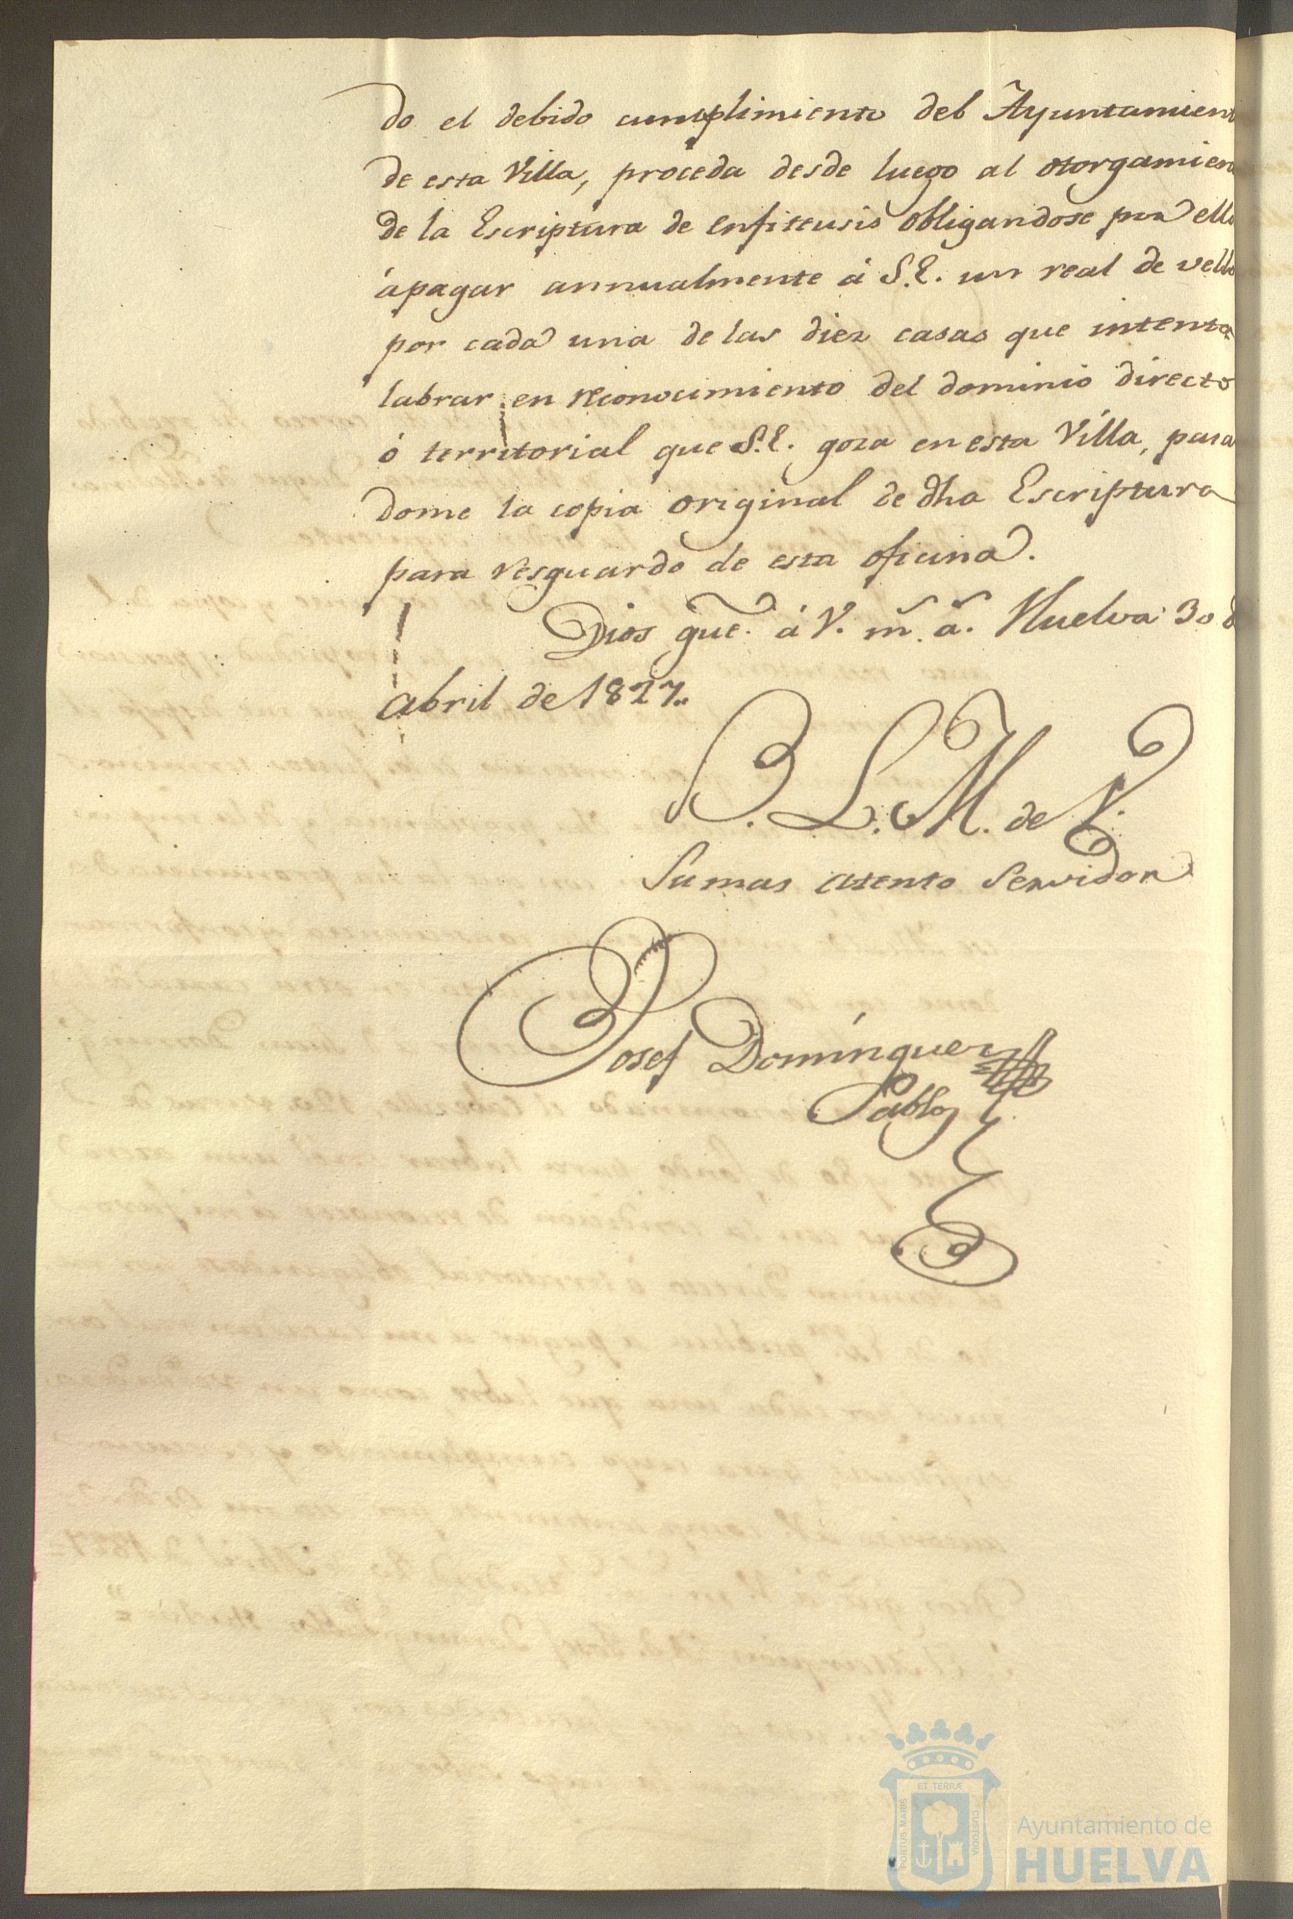 do el debido cumplimiento del Ayuntamient
de esta Villa, proceda desde luego al otorgamien
de la Escriptura de enfiteusis obligandose por ello
á pagar annualmente á S.E. un real de vello
por cada una de las diez casas que intenta
labrar en reconocimiento del dominio directo
ó territorial que S.E. goza en esta Villa, pasa
dome la copia original de dha Escriptura
para resguardo de esta oficina.
Dios gue. á V. m.s a.s Huelva 30 d
abril de 1827.
B. L. M. de V.
su mas atento servidor
Josef Domínguez
Pablo
ET TERRÆ
PORTUS MARIS
CUSTODIA
Ayuntamiento de
HUELVA